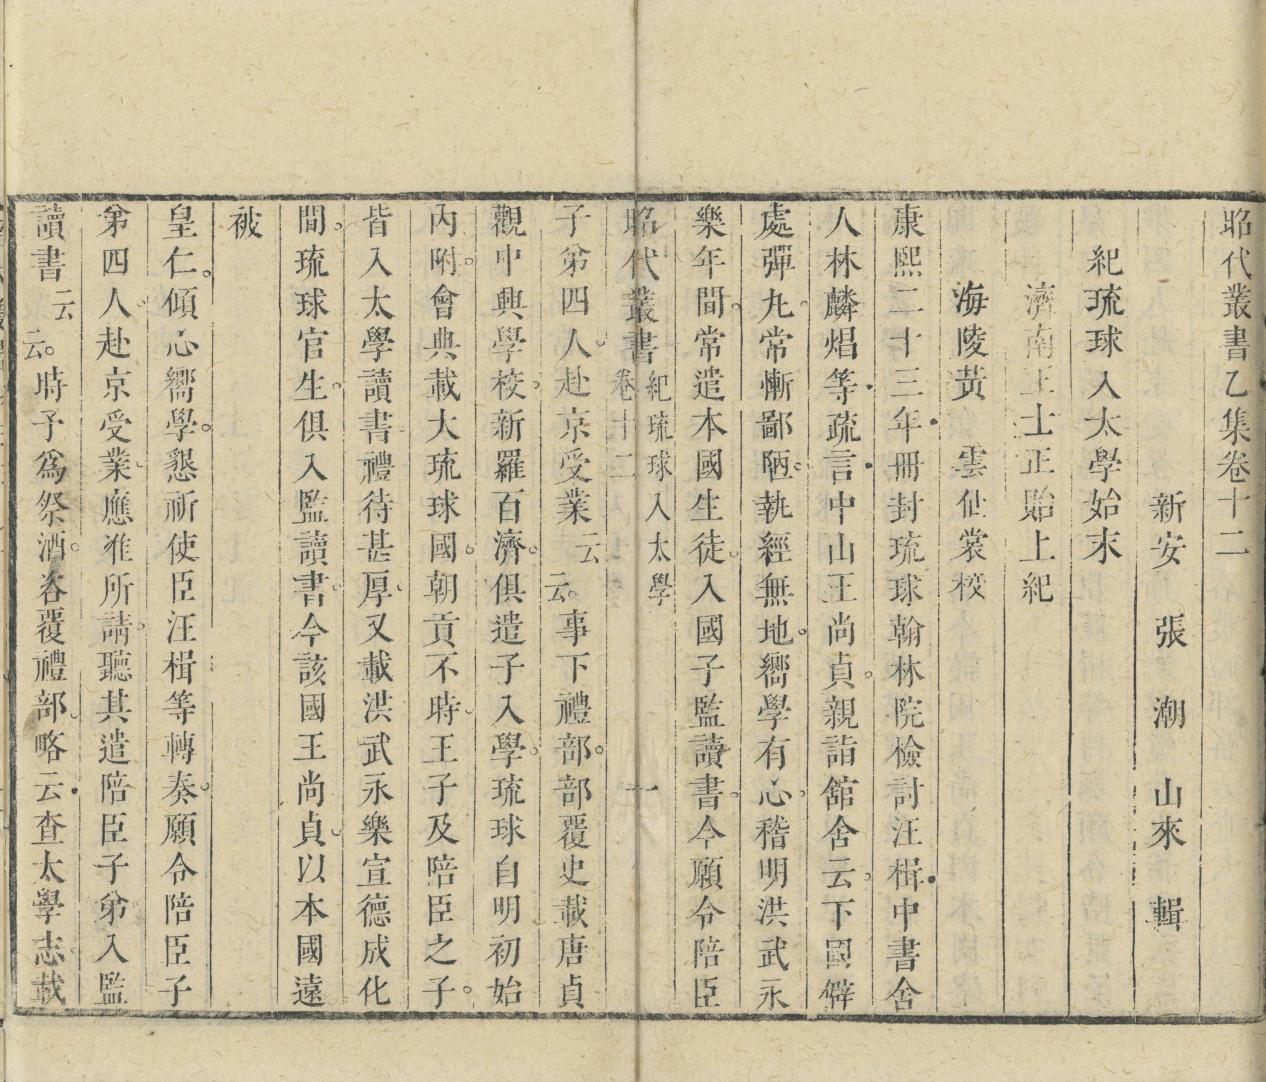 昭代叢書乙集卷十二
新安 張 潮 山來 輯
紀琉球入太學始末
濟南王士正貽上紀
海陵黃 雲仙裳校
康熙二十三年冊封琉球翰林院檢討汪楫中書舍
人林麟焻等疏言中山王尚貞親詣館舍云下國僻
處彈丸常慚鄙陋執經無地嚮學有心稽明洪武永
樂年間常遣本國生徒入國子監讀書今願令陪臣
昭代叢書 卷十二 紀琉球入太學 一
子弟四人赴京受業云云事下禮部部覆史載唐貞
觀中興學校新羅百濟俱遣子入學琉球自明初始
內附會典載大琉球國朝貢不時王子及陪臣之子
皆入太學讀書禮待甚厚又載洪武永樂宣德成化
間琉球官生俱入監讀書今該國王尚貞以本國遠
被
皇仁傾心嚮學懇祈使臣汪楫等轉奏願令陪臣子
弟四人赴京受業應准所請聽其遣陪臣子弟入監
讀書云云時予為祭酒咨覆禮部略云查太學志載